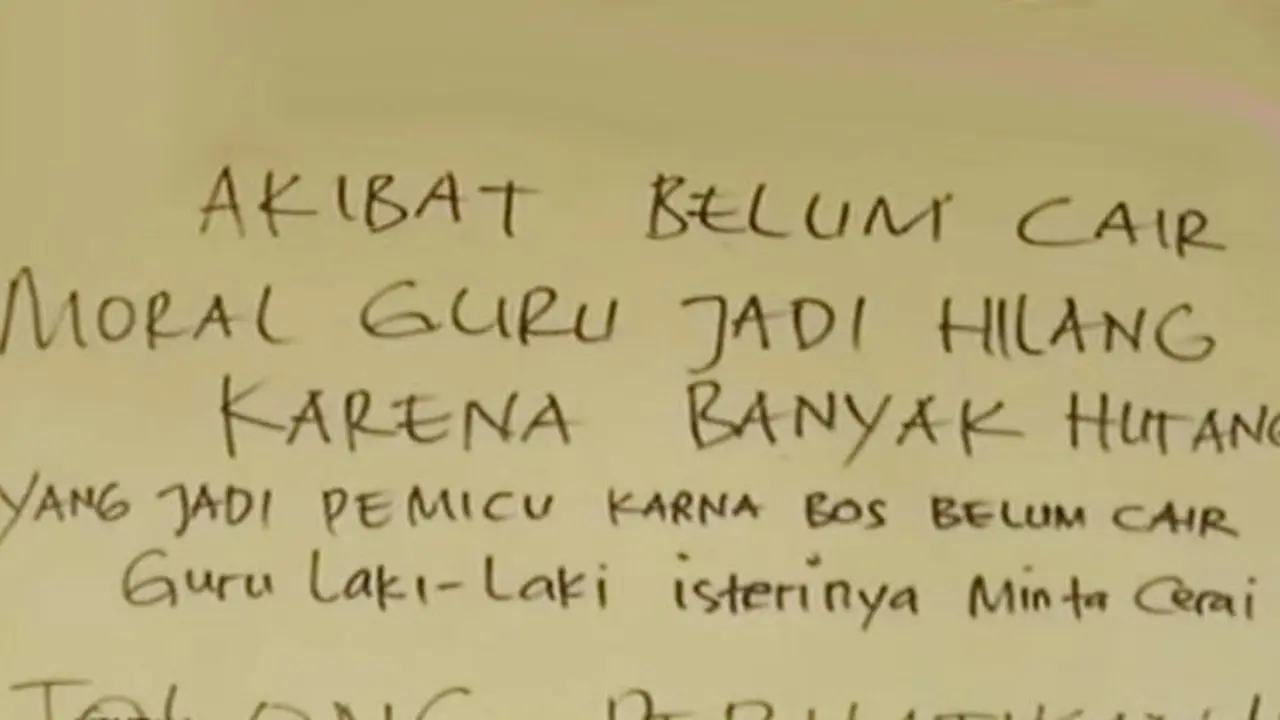 AKIBAT BELUM CAIR
MORAL GURU JADI HILANG
KARENA BANYAK HUTANG
YANG JADI PEMICU KARNA BOS BELUM CAIR
Guru Laki-Laki isterinya Minta Cerai
TOLONG